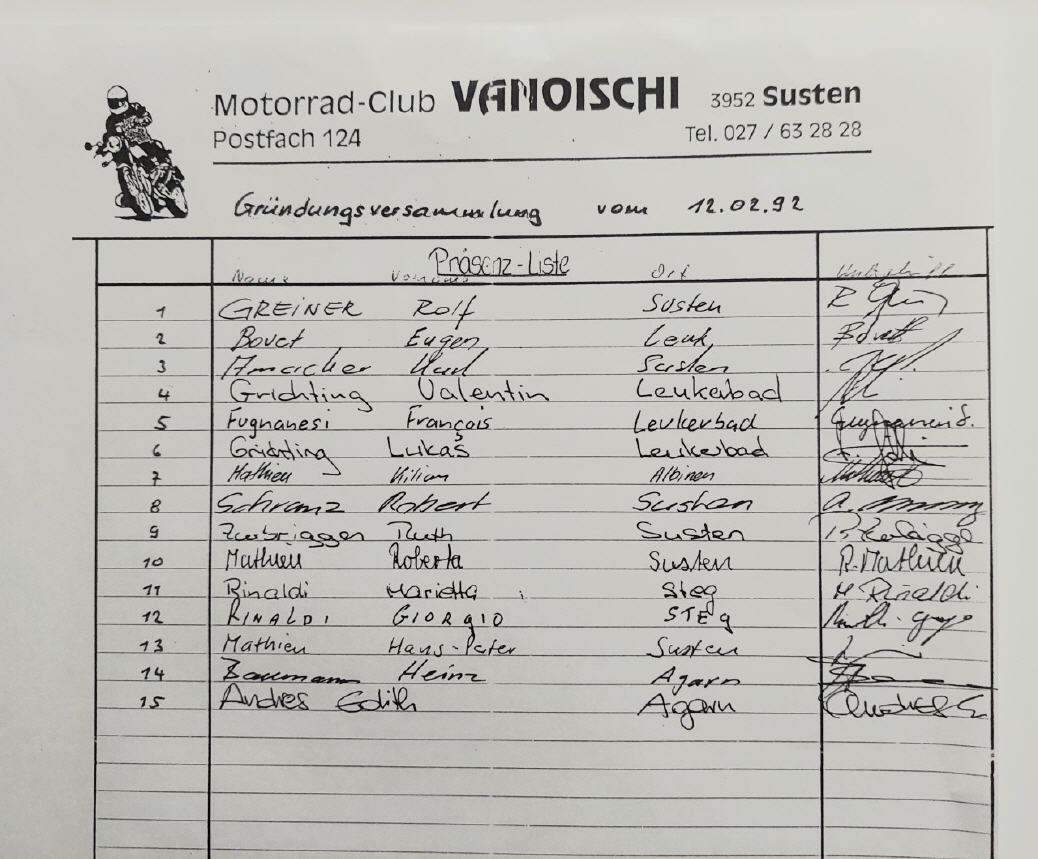 Motorrad-Club VANOISCHI 3952 Susten
Postfach 124 Tel. 027 / 63 28 28
Gründungsversammlung vom 12.02.92
Präsenz-Liste
Name Vorname Ort Unterschrift
1 GREINER Rolf Susten
2 Bovet Eugen Leuk Bovet
3 Amacher Susten
4 Grichting Valentin Leukerbad
5 Fugnanesi Français Leukerbad
6 Grichting Lukas Leukerbad
7 Mathieu Kilian Albinen
8 Schranz Robert Susten
9 Zurbriggen Ruth Susten
10 Mathieu Roberta Susten R. Mathieu
11 Rinaldi Marietta Steg M Rinaldi
12 RINALDI GIORGIO STEg
13 Mathieu Hans-Peter Susten
14 Baumann Heinz Agarn
15 Andres Edith Agarn Andres E